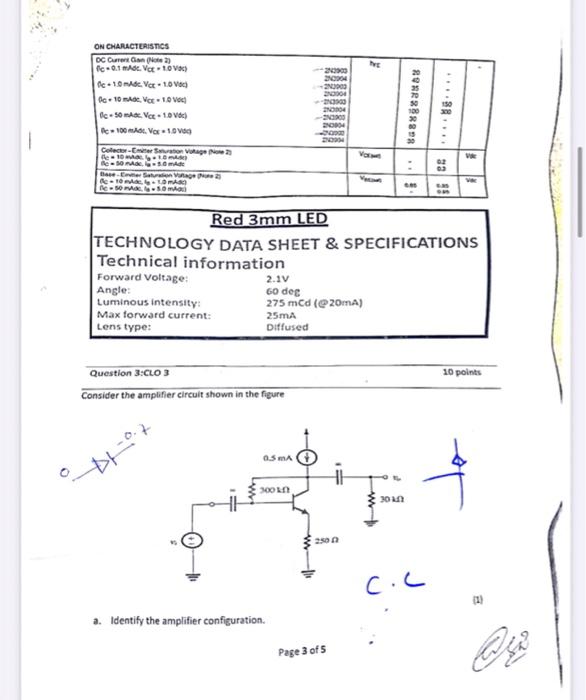 ON CHARACTERISTICS
DC Current Gain (Note 2)
(IC = 0.1 mAdc, VCE = 1.0 Vdc) 2N3903 20
2N3904 40
(IC = 1.0 mAdc, VCE = 1.0 Vdc) 2N3903 35
2N3904 70
(IC = 10 mAdc, VCE = 1.0 Vdc) 2N3903 50 150
2N3904 100 300
(IC = 50 mAdc, VCE = 1.0 Vdc) 2N3903 30
2N3904 60
(IC = 100 mAdc, VCE = 1.0 Vdc) 2N3903 15
2N3904 30
Collector-Emitter Saturation Voltage (Note 2) Vdc
(IC = 10 mAdc, IB = 1.0 mAdc) 0.2
(IC = 50 mAdc, IB = 5.0 mAdc) 0.3
Base-Emitter Saturation Voltage (Note 2) Vdc
(IC = 10 mAdc, IB = 1.0 mAdc) 0.65 0.85
(IC = 50 mAdc, IB = 5.0 mAdc) - 0.95
Red 3mm LED
TECHNOLOGY DATA SHEET & SPECIFICATIONS
Technical information
Forward Voltage: 2.1V
Angle: 60 deg
Luminous intensity: 275 mCd (@20mA)
Max forward current: 25mA
Lens type: Diffused
Question 3:CLO 3 10 points
Consider the amplifier circuit shown in the figure
0 -0.7
0.5 mA
300 kΩ
30 kΩ
250 Ω
C.C
(1)
a. Identify the amplifier configuration.
Page 3 of 5